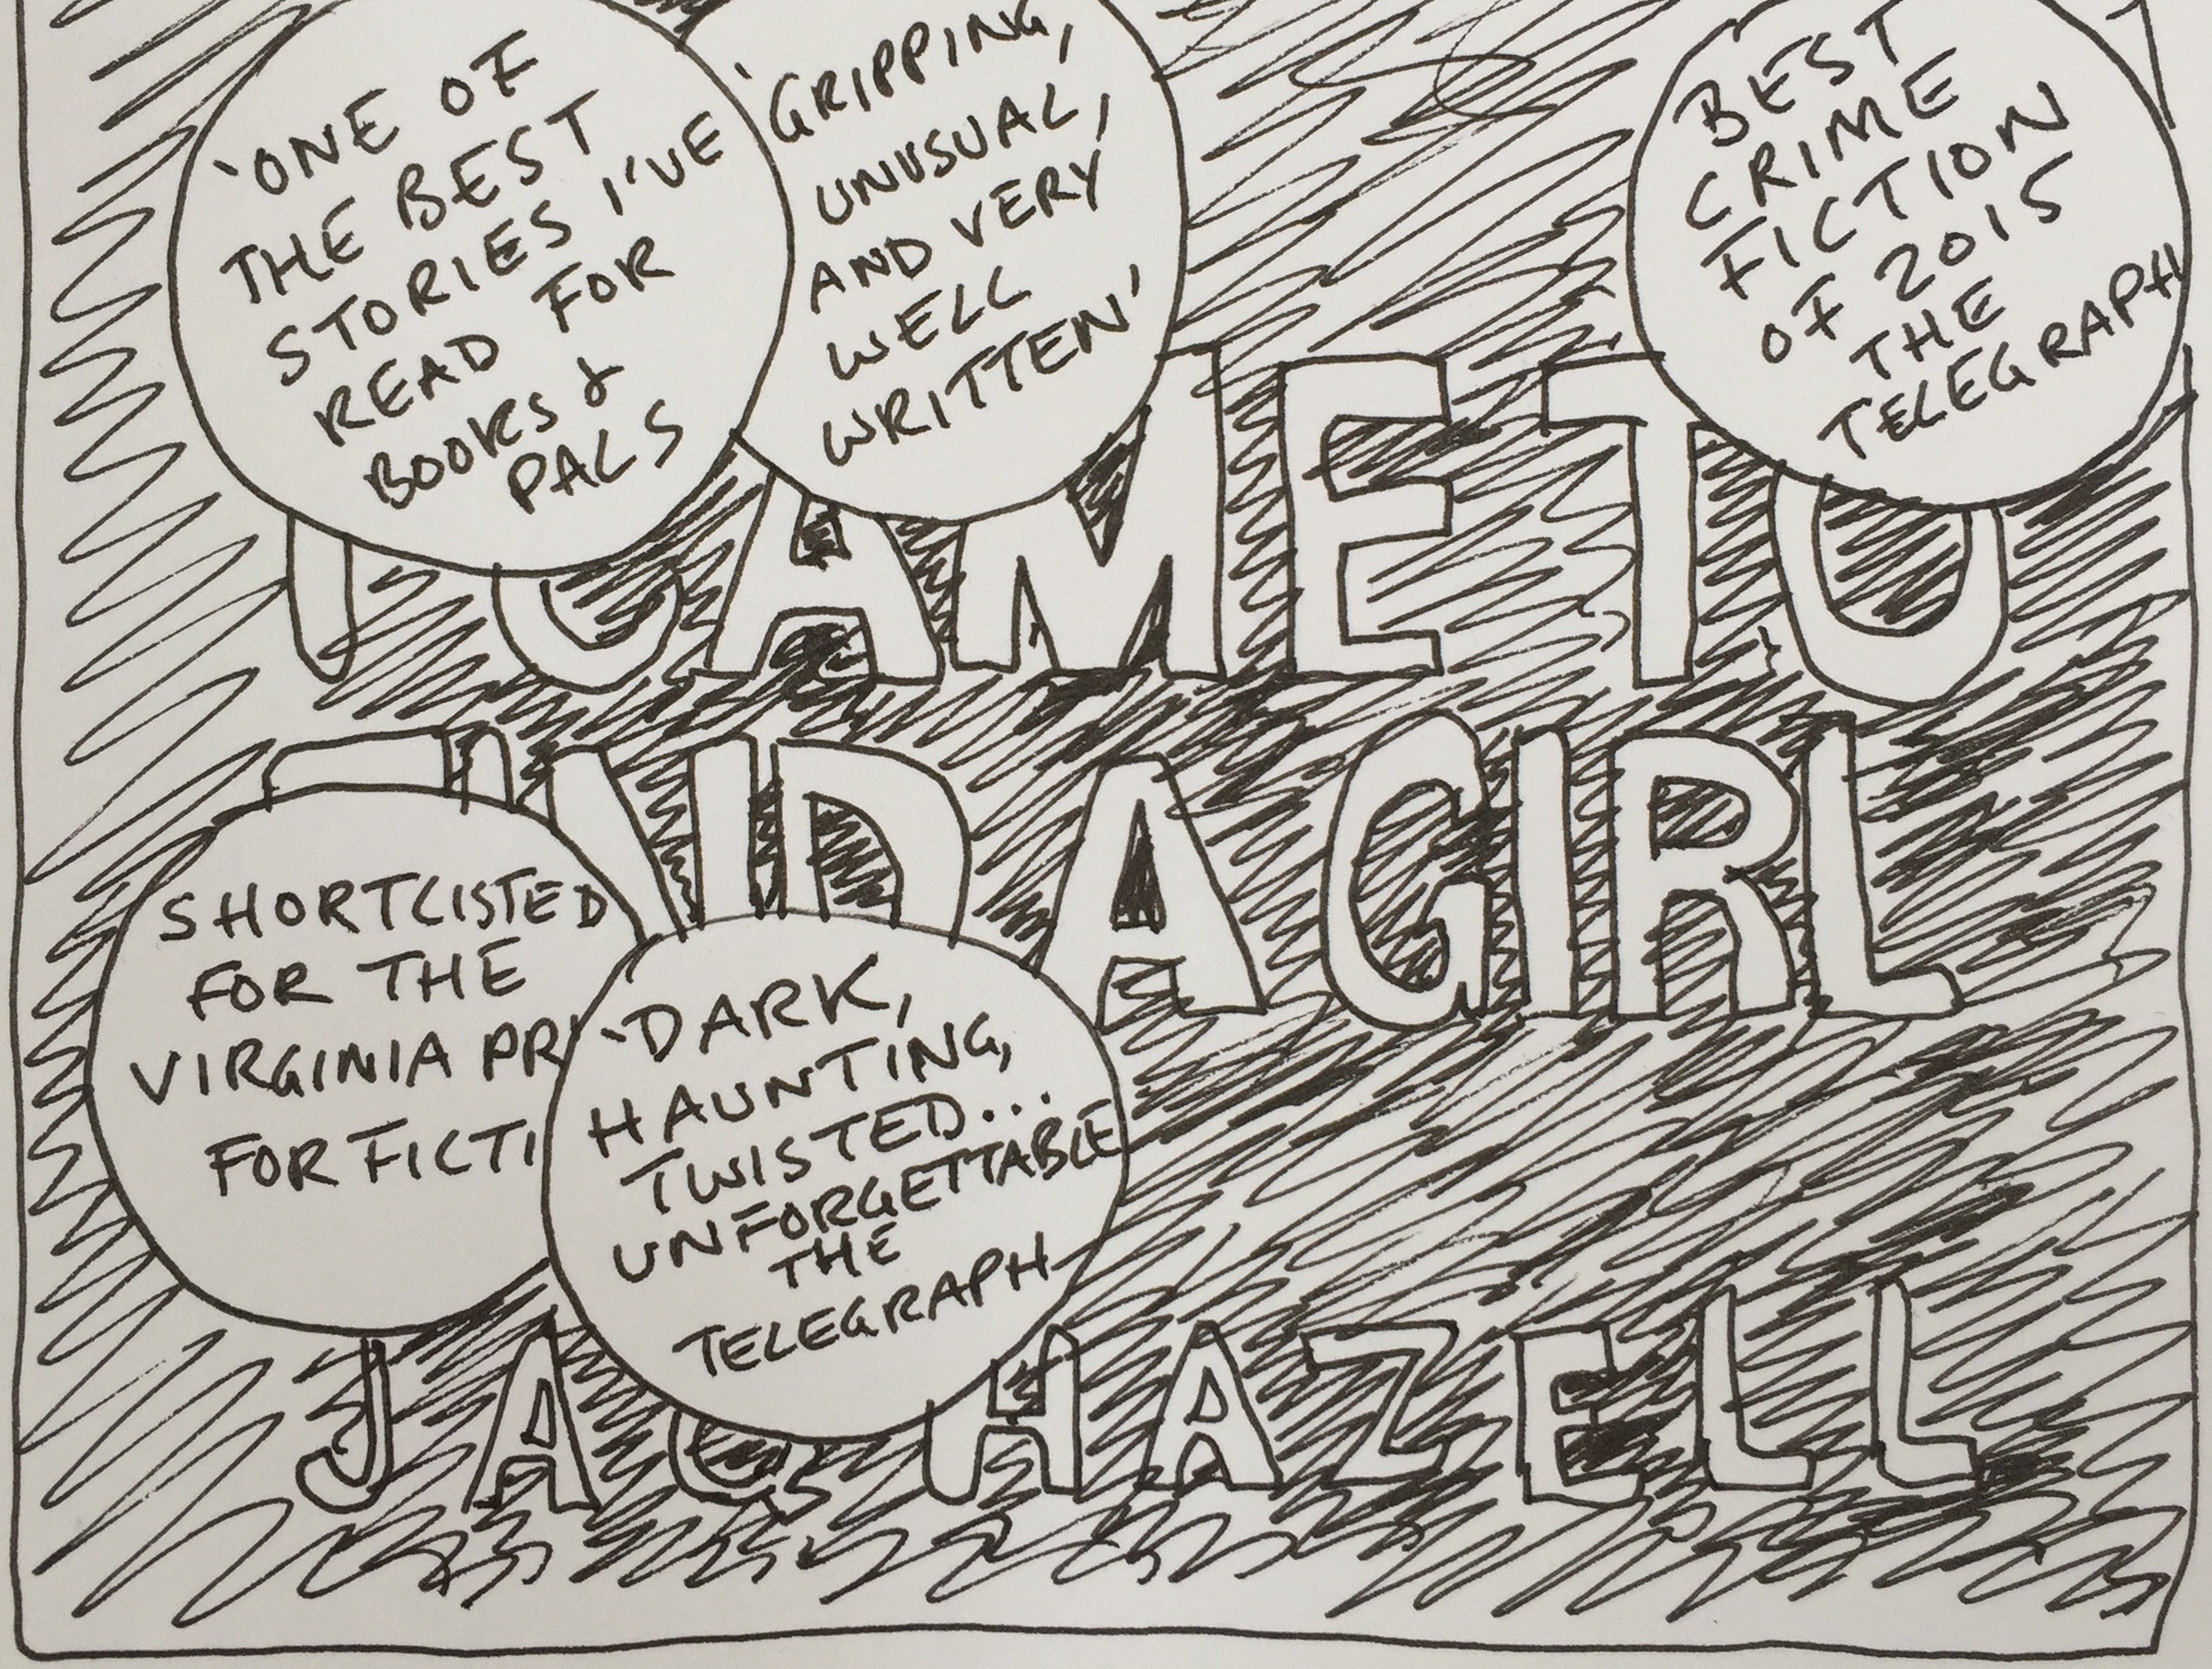 'ONE OF
THE BEST
STORIES I'VE
READ FOR
BOOKS &
PALS
'GRIPPING,
UNUSUAL,
AND VERY
WELL
WRITTEN'
BEST
CRIME
FICTION
OF 2015
THE
TELEGRAPH
I CAME TO
FIND A GIRL
SHORTLISTED
FOR THE
VIRGINIA PRI
FOR FICTI
'DARK,
HAUNTING,
TWISTED...
UNFORGETTABLE
THE
TELEGRAPH
JAQ HAZELL